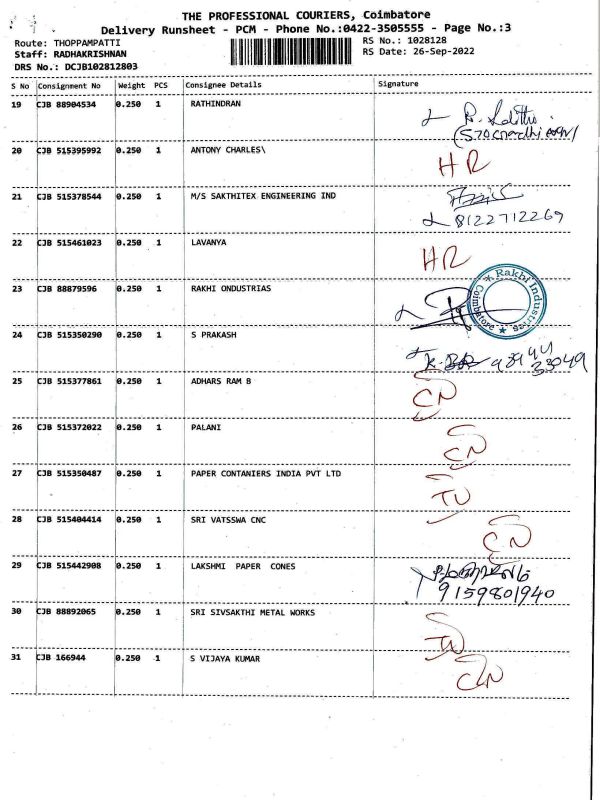 THE PROFESSIONAL COURIERS, Coimbatore
Delivery Runsheet - PCM - Phone No.:0422-3505555 - Page No.:3
Route: THOPPAMPATTI
RS No.: 1028128
Staff: RADHAKRISHNAN
RS Date: 26-Sep-2022
DRS No.: DCJB102812803
S No Consignment No Weight PCS Consignee Details Signature
19 CJB 88904534 0.250 1 RATHINDRAN
20 CJB 515395992 0.250 1 ANTONY CHARLES\ HR
21 CJB 515378544 0.250 1 M/S SAKTHITEX ENGINEERING IND
8122712269
22 CJB 515461023 0.250 1 LAVANYA HR
23 CJB 88879596 0.250 1 RAKHI ONDUSTRIAS
Rakhi Industries Coimbatore
24 CJB 515350290 0.250 1 S PRAKASH
98944 33049
25 CJB 515377861 0.250 1 ADHARS RAM B CN
26 CJB 515372022 0.250 1 PALANI CN
27 CJB 515350487 0.250 1 PAPER CONTANIERS INDIA PVT LTD
28 CJB 515404414 0.250 1 SRI VATSSWA CNC CN
29 CJB 515442908 0.250 1 LAKSHMI PAPER CONES
9159801940
30 CJB 88892065 0.250 1 SRI SIVSAKTHI METAL WORKS
31 CJB 166944 0.250 1 S VIJAYA KUMAR CN